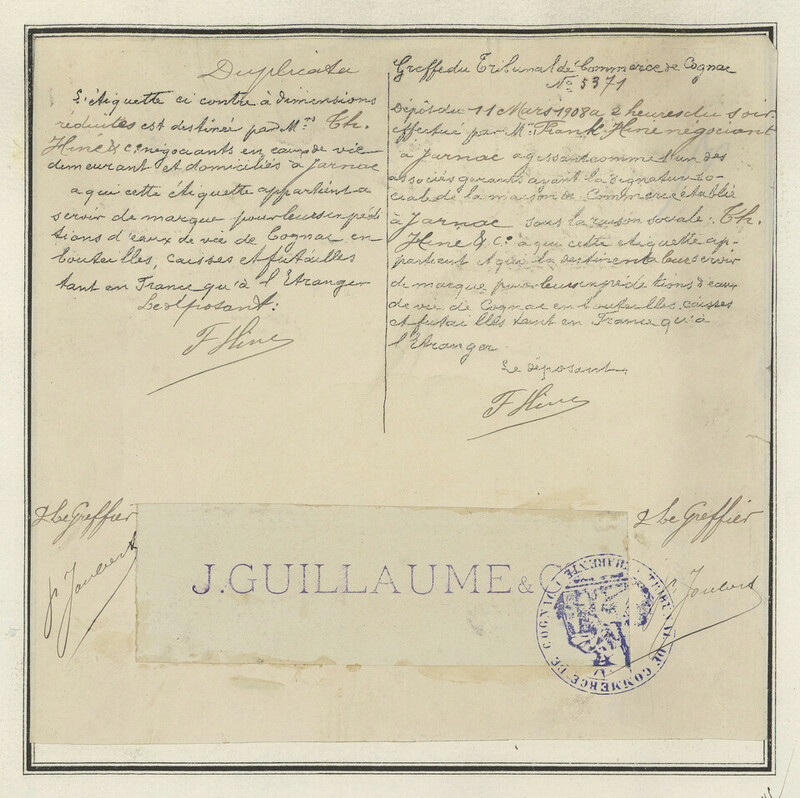 Duplicata
L'étiquette ci contre à dimensions
réduites est destinée par Mrs Th.
Hine & Co négociants en eaux de vie
demeurant et domiciliés à Jarnac
à qui cette étiquette appartient a
servir de marque pour leurs expédi
tions d'eaux de vie de Cognac en
bouteilles, caisses et futailles
tant en France qu'à l'Etranger
Le déposant:
F Hine
Greffe du Tribunal de Commerce de Cognac
No 5371
Dépôt du 11 Mars 1908 a 2 heures du soir
effectué par Mr Frank Hine négociant
à Jarnac agissant comme l'un des
associés gérants ayant la signature so-
ciale de la maison de Commerce établie
à Jarnac sous la raison sociale: Th.
Hine & Co à qui cette étiquette ap-
partient et qui la destinent a leur servir
de marque pour leurs expéditions d'eaux
de vie de Cognac en bouteilles, caisses
et futailles tant en France qu'à
l'Etranger
Le déposant.
F Hine
Le Greffier
Le Greffier
J. GUILLAUME & C
TRIBUNAL DE COMMERCE DE COGNAC
CHARENTE